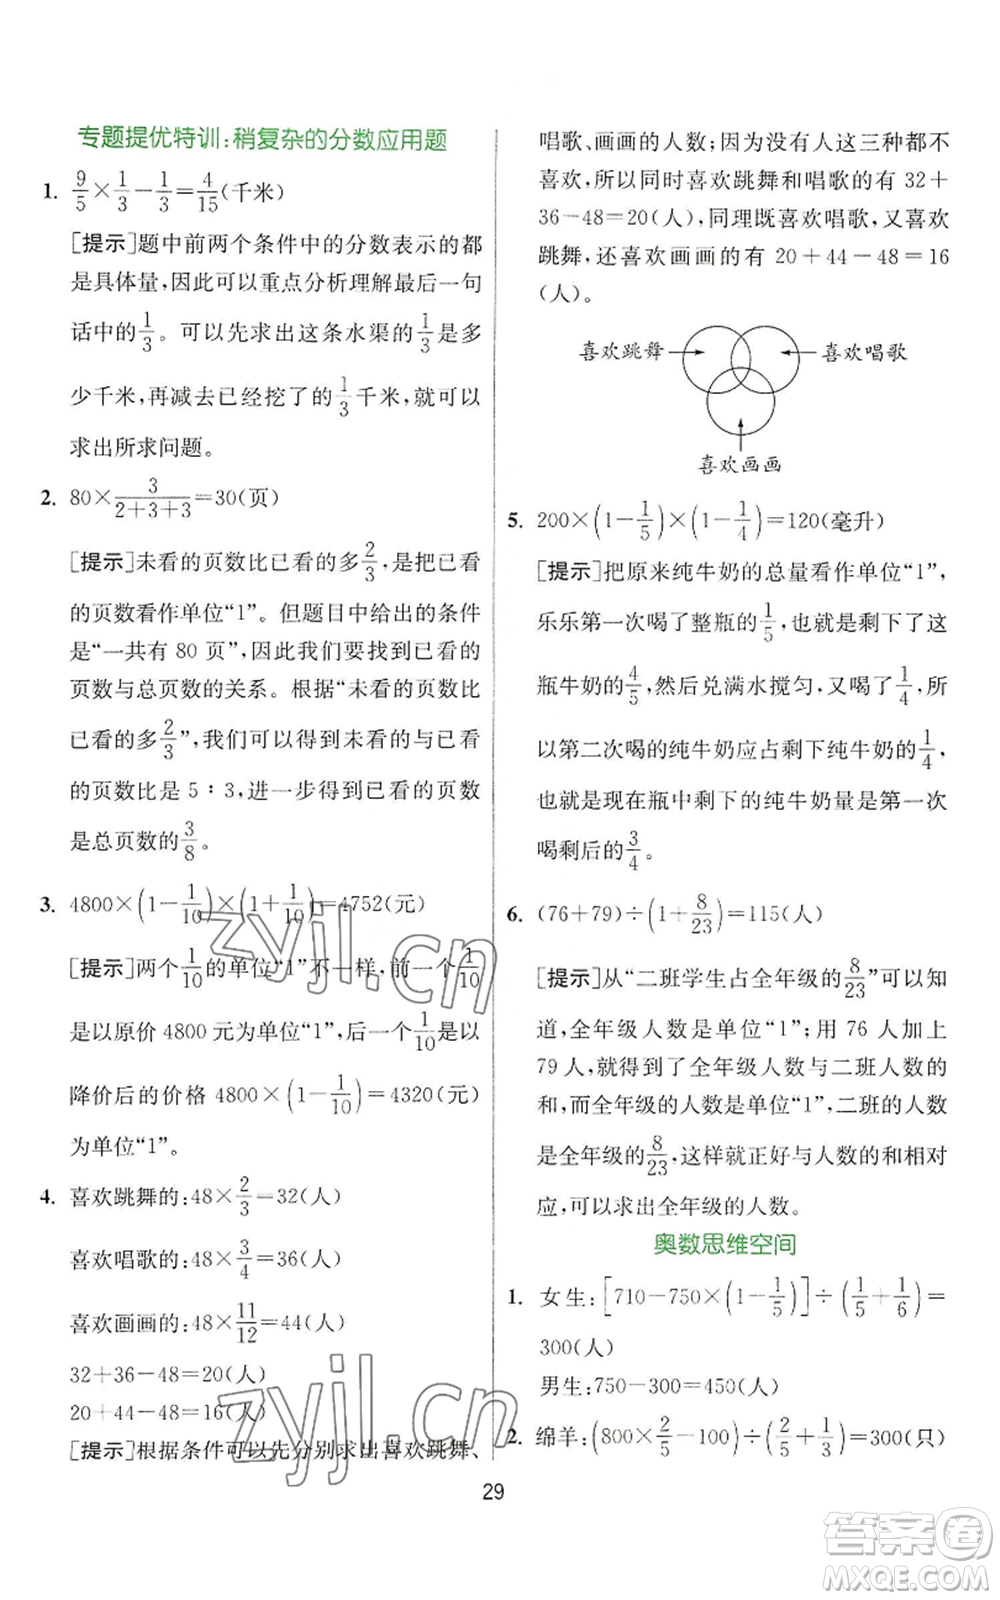 专题提优特训:稍复杂的分数应用题
1. 9/5×1/3-1/3=4/15(千米)
[提示]题中前两个条件中的分数表示的都
是具体量,因此可以重点分析理解最后一句
话中的1/3。可以先求出这条水渠的1/3是多
少千米,再减去已经挖了的1/3千米,就可以
求出所求问题。
2. 80×3/(2+3+3)=30(页)
[提示]未看的页数比已看的多2/3,是把已看
的页数看作单位“1”。但题目中给出的条件
是“一共有 80 页”,因此我们要找到已看的
页数与总页数的关系。根据“未看的页数比
已看的多2/3”,我们可以得到未看的与已看
的页数比是 5∶3,进一步得到已看的页数
是总页数的3/8。
3. 4800×(1-1/10)×(1+1/10)=4752(元)
[提示]两个1/10的单位“1”不一样,前一个1/10
是以原价 4800 元为单位“1”,后一个1/10是以
降价后的价格 4800×(1-1/10)=4320(元)
为单位“1”。
4. 喜欢跳舞的:48×2/3=32(人)
喜欢唱歌的:48×3/4=36(人)
喜欢画画的:48×11/12=44(人)
32+36-48=20(人)
20+44-48=16(人)
[提示]根据条件可以先分别求出喜欢跳舞、
唱歌、画画的人数;因为没有人这三种都不
喜欢,所以同时喜欢跳舞和唱歌的有 32+
36-48=20(人),同理既喜欢唱歌,又喜欢
跳舞,还喜欢画画的有 20+44-48=16
(人)。
喜欢跳舞 喜欢唱歌
喜欢画画
5. 200×(1-1/5)×(1-1/4)=120(毫升)
[提示]把原来纯牛奶的总量看作单位“1”,
乐乐第一次喝了整瓶的1/5,也就是剩下了这
瓶牛奶的4/5,然后兑满水搅匀,又喝了1/4,所
以第二次喝的纯牛奶应占剩下纯牛奶的1/4,
也就是现在瓶中剩下的纯牛奶量是第一次
喝剩后的3/4。
6. (76+79)÷(1+8/23)=115(人)
[提示]从“二班学生占全年级的8/23”可以知
道,全年级人数是单位“1”;用 76 人加上
79 人,就得到了全年级人数与二班人数的
和,而全年级的人数是单位“1”,二班的人数
是全年级的8/23,这样就正好与人数的和相对
应,可以求出全年级的人数。
奥数思维空间
1. 女生:[710-750×(1-1/5)]÷(1/5+1/6)=
300(人)
男生:750-300=450(人)
2. 绵羊:(800×2/5-100)÷(2/5+1/3)=300(只)
29
zyjl.cn
zyjl.cn
答案圈
MXQE.COM